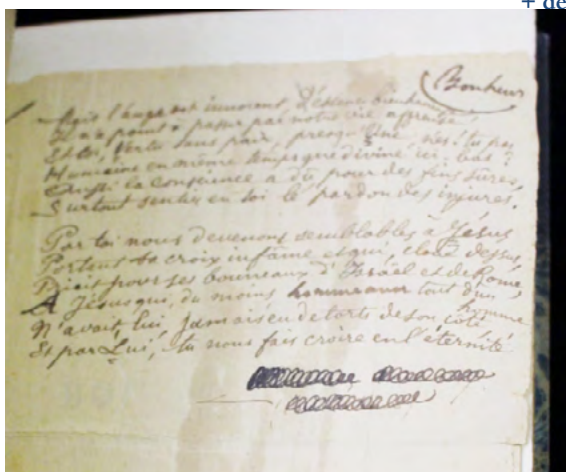 + de
Bonheur
Mais l'ange est innocent, l'essence bienheureuse
Il n'a point à passer par notre vie affreuse
Et toi, Vertu sans pair, presque Une, n'es-tu pas
Humaine en même temps que divine ici-bas?
Aussi la conscience a dû pour des fins sûres,
Surtout sentir en toi le pardon des injures.
Par toi nous devenons semblables à Jésus
Portant sa croix infâme et qui, cloué dessus,
Priait pour ses bourreaux d'Israël et de Rome,
A Jésus qui, du moins, homme avec tout d'un homme
N'avait, lui, jamais eu de torts de son côté,
Et par Lui, tu nous fais croire en l'éternité